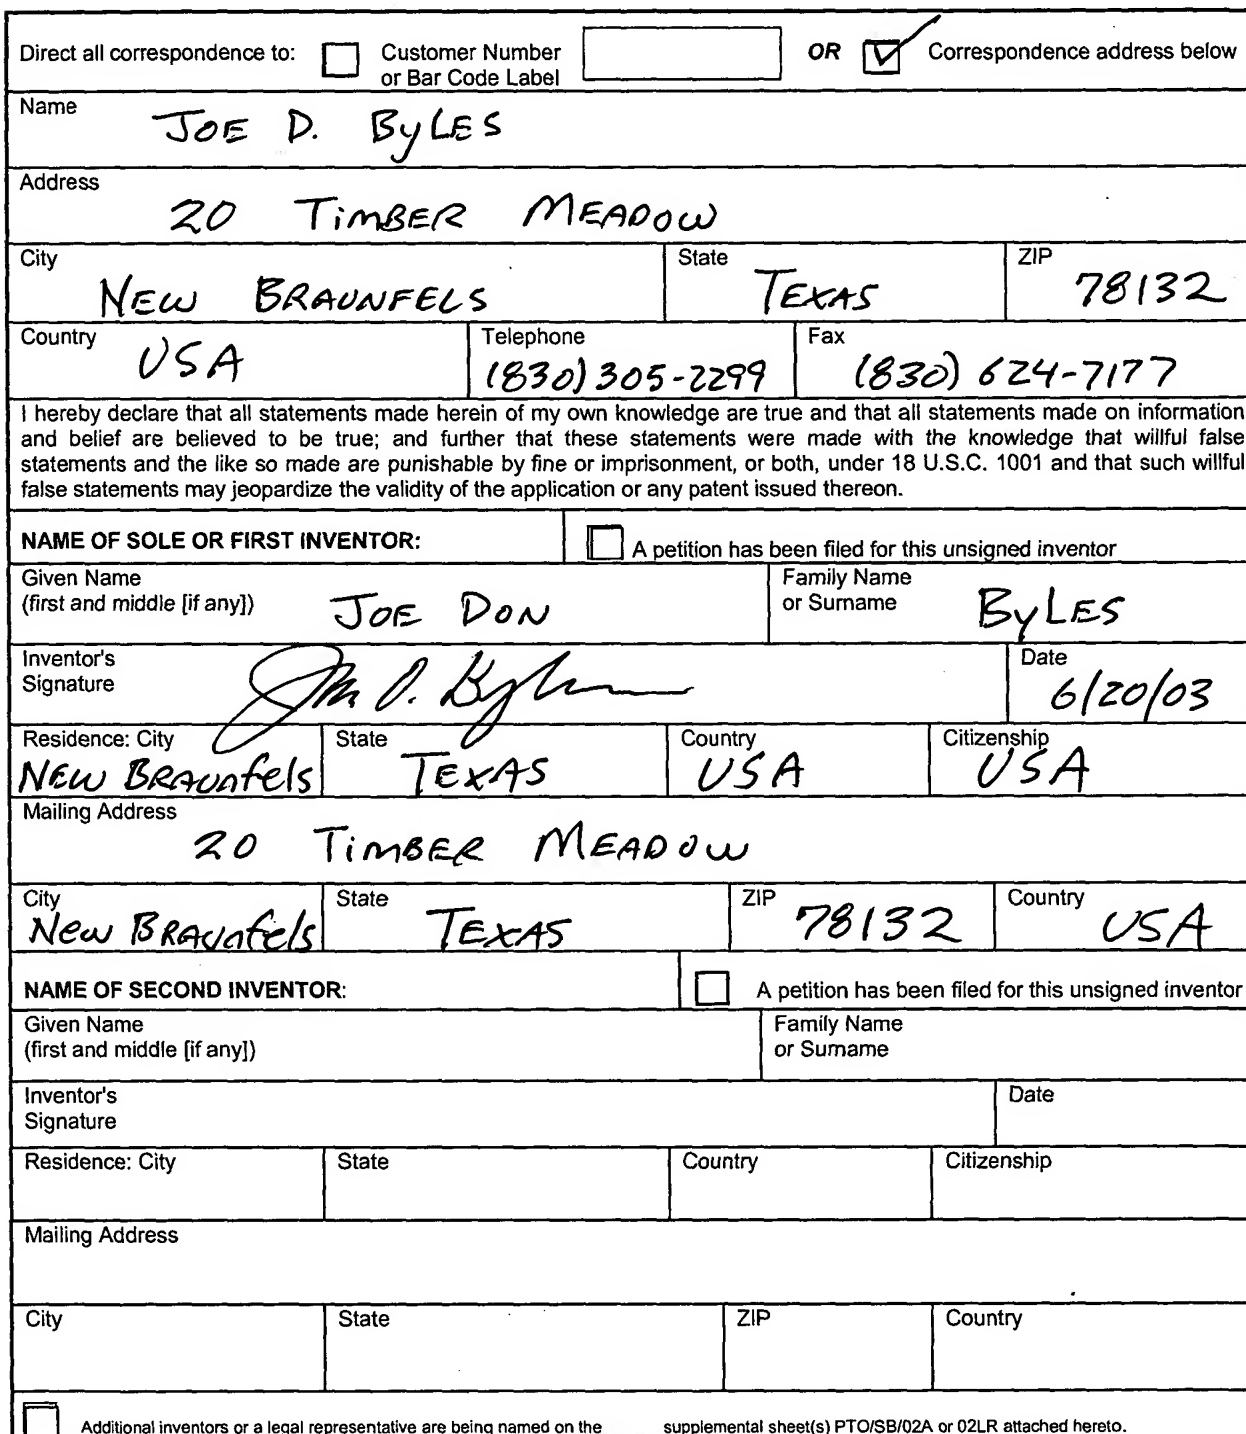 Direct all correspondence to: Customer Number or Bar Code Label OR Correspondence address below
Name
JOE D. ByLES
Address
20 TimBER MEADOW
City State ZIP
NEW BRAUNFELS TEXAS 78132
Country Telephone Fax
USA (830) 305-2299 (830) 624-7177
I hereby declare that all statements made herein of my own knowledge are true and that all statements made on information
and belief are believed to be true; and further that these statements were made with the knowledge that willful false
statements and the like so made are punishable by fine or imprisonment, or both, under 18 U.S.C. 1001 and that such willful
false statements may jeopardize the validity of the application or any patent issued thereon.
NAME OF SOLE OR FIRST INVENTOR: A petition has been filed for this unsigned inventor
Given Name
(first and middle [if any]) JOE DON
Family Name
or Surname ByLES
Inventor's
Signature
Date
6/20/03
Residence: City State Country Citizenship
NEW BRAUnfels TEXAS USA USA
Mailing Address
20 TimBER MEADOW
City State ZIP Country
New BRAUnfels TEXAS 78132 USA
NAME OF SECOND INVENTOR: A petition has been filed for this unsigned inventor
Given Name
(first and middle [if any])
Family Name
or Surname
Inventor's
Signature
Date
Residence: City State Country Citizenship
Mailing Address
City State ZIP Country
Additional inventors or a legal representative are being named on the supplemental sheet(s) PTO/SB/02A or 02LR attached hereto.